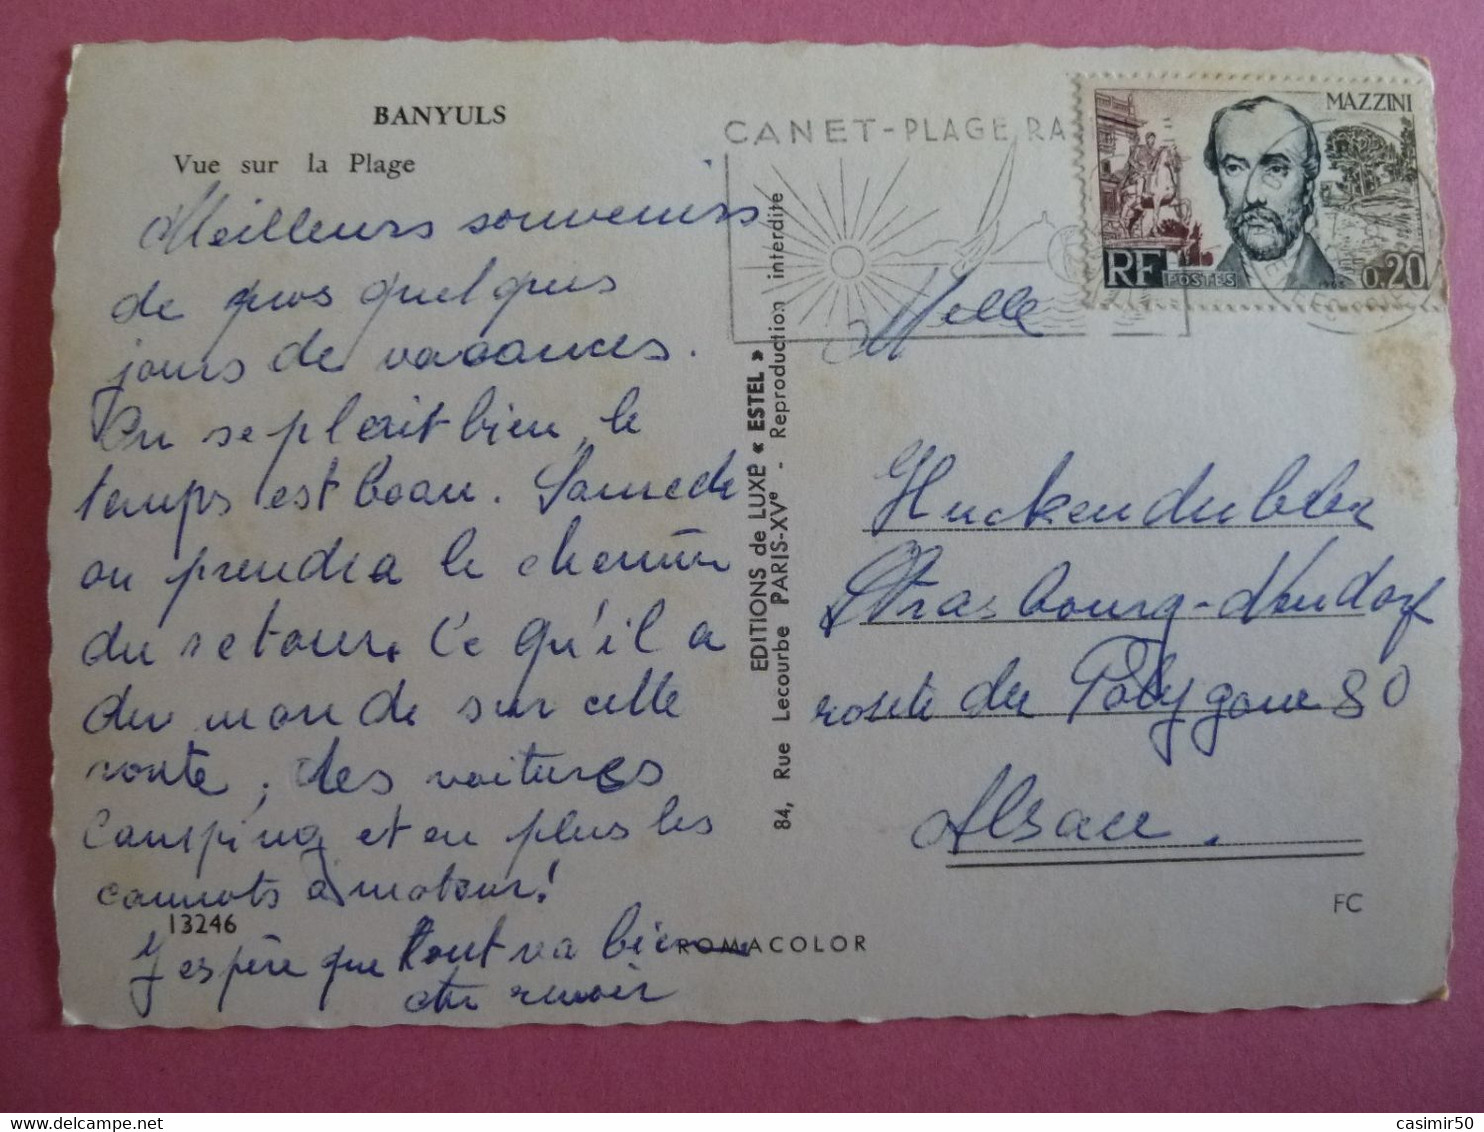 BANYULS
Vue sur la Plage
Meilleurs souvenirs
de nos quelques
jours de vacances.
On se plait bien, le
temps est beau. Samedi
on prendra le chemin
du retour. Ce qu'il a
du monde sur cette
route, des voitures
Camping et en plus les
cannots à moteur!
J'espère que tout va bien
au revoir
13246
ROMACOLOR
EDITIONS de LUXE « ESTEL »
84, Rue Lecourbe PARIS-XVe - Reproduction interdite
CANET-PLAGE RA
MAZZINI
RF POSTES 0.20
Melle
Huckendubler
Strasbourg-Neudorf
route du Polygone 80
Alsace.
FC
casimir50